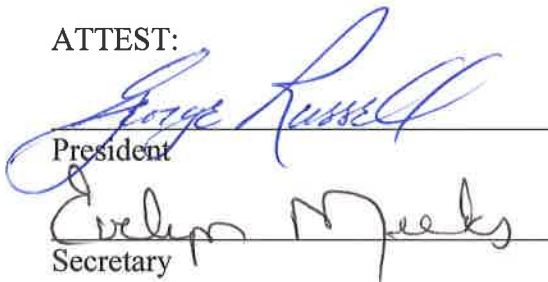 ATTEST:
George Russell
President
Evelyn Meeks
Secretary